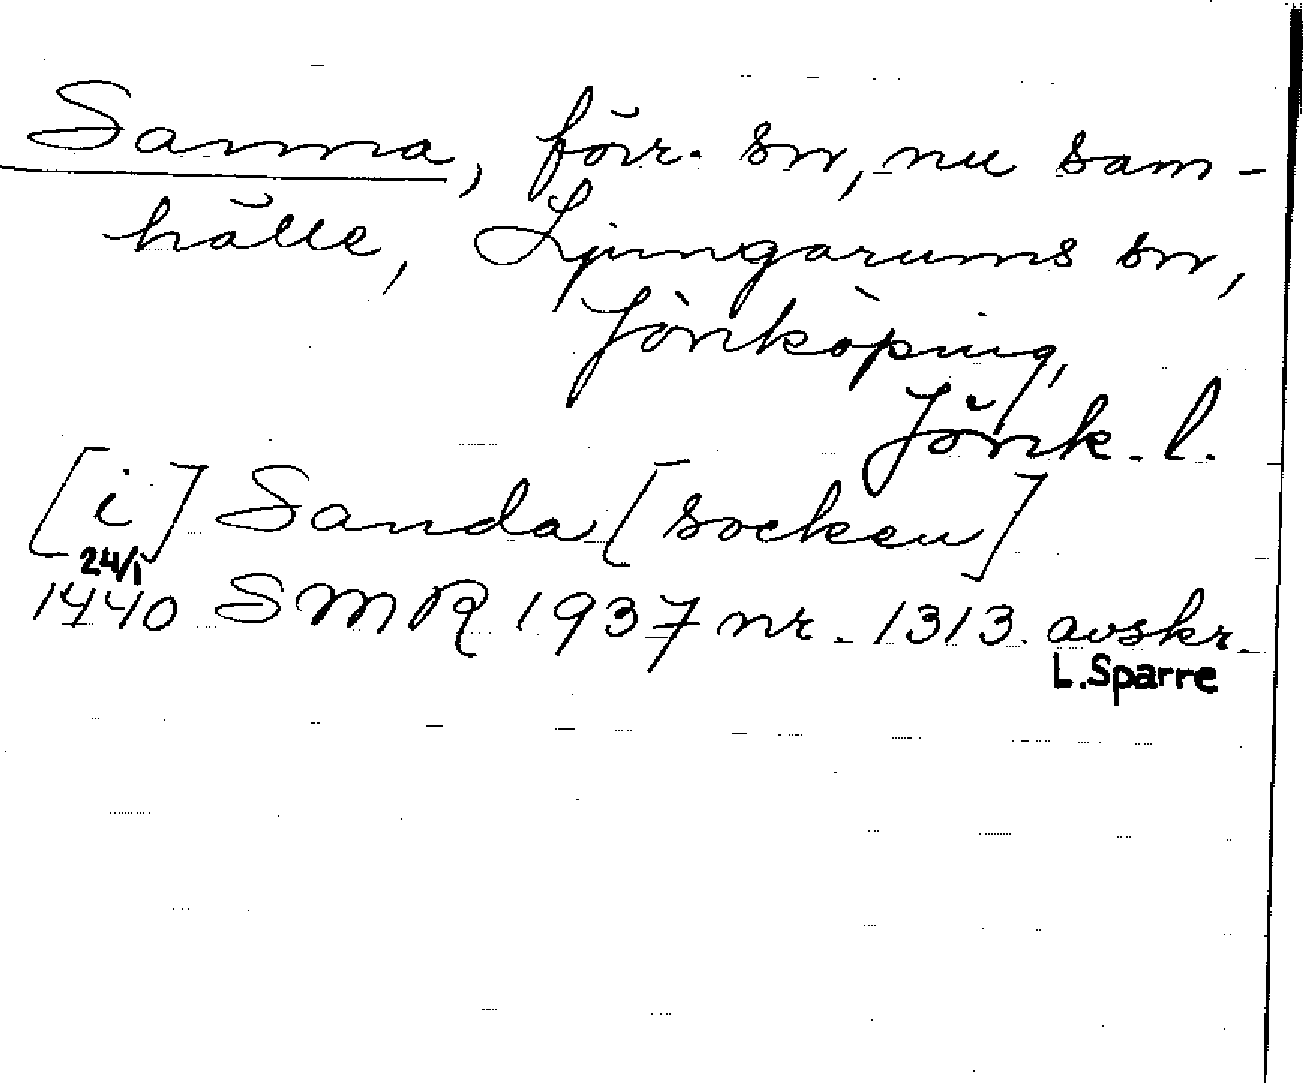 Sanna, förr. sn, nu sam-
hälle, Ljungarums sn,
Jönköping,
Jönk. l.
[i] Sanda [socken]
24/1
1440 SMR 1937 nr. 1313 avskr.
L. Sparre